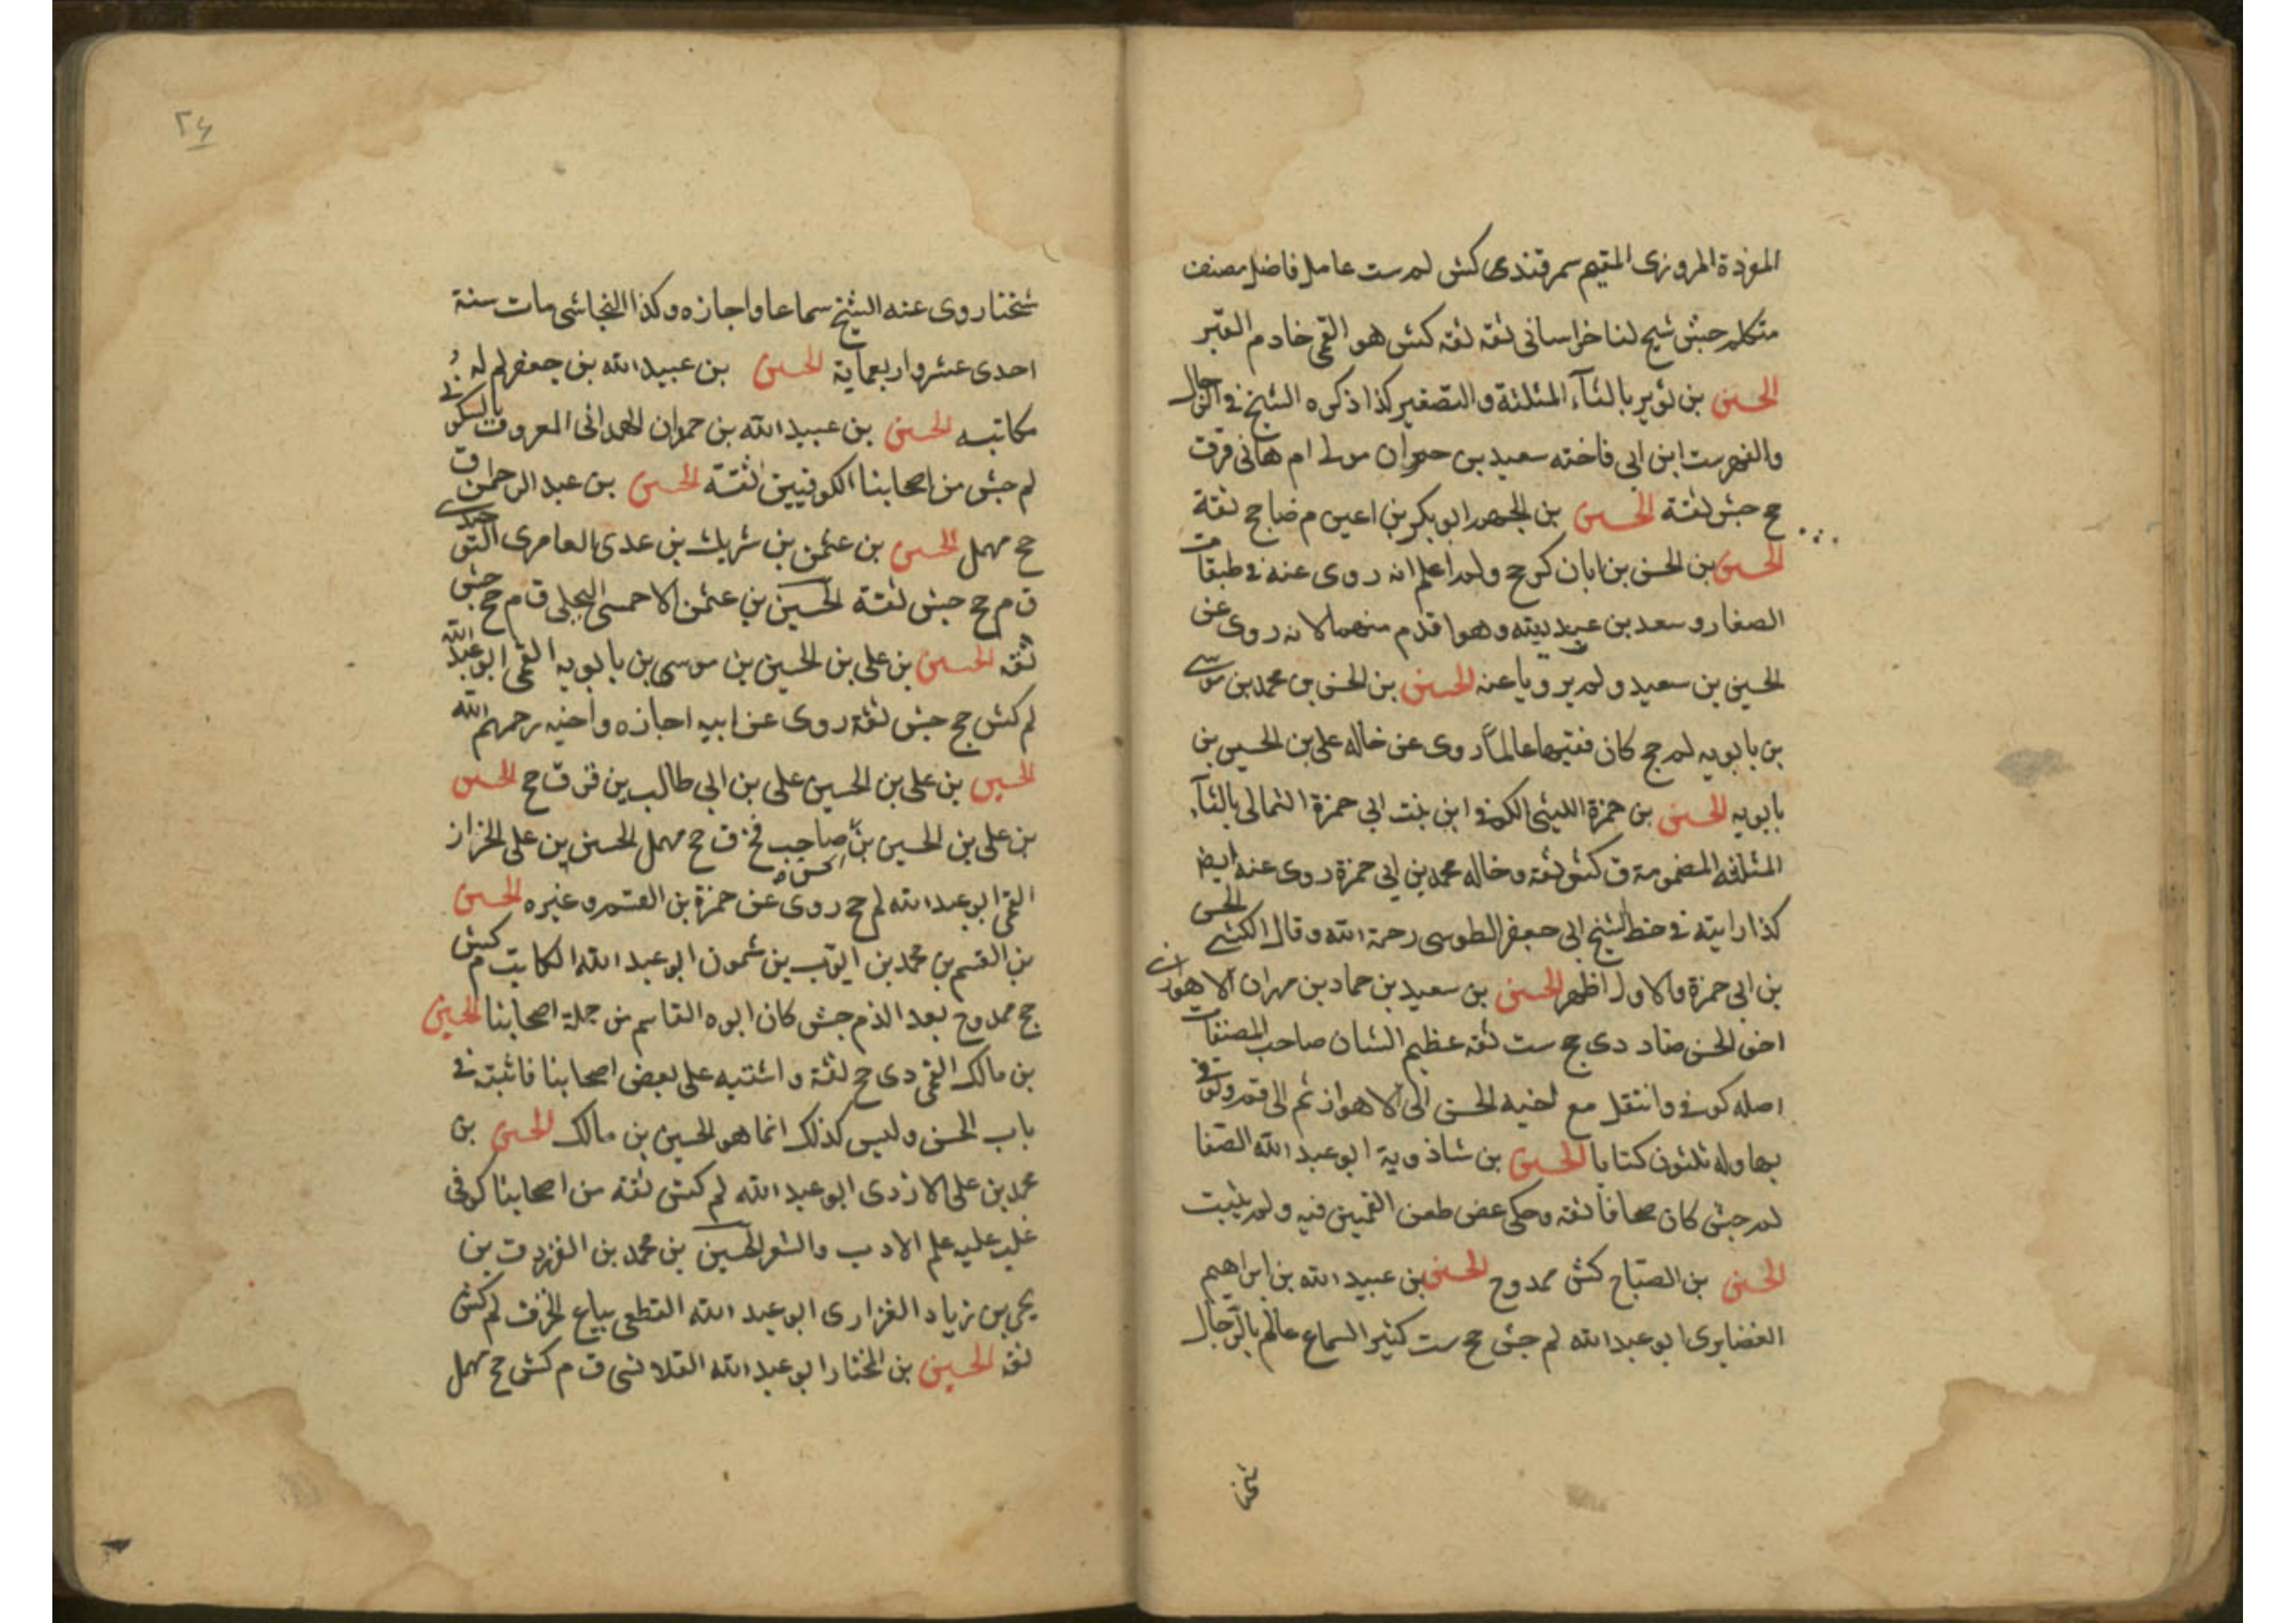 المؤدة المروزى المقيم سمرقندى كش لم ست عامل فاضل مصنف
متكلم جش شيخ لنا خراسانى ثقة ثقة كش هو القمى خادم القبر
الحسين بن ثوير بالثآء المثلثة والتصغير كذا ذكره الشيخ فى الرجال
والفهرست ابن ابى فاخته سعيد بن حمران مولى ام هانى قرق
جح جش ثقة الحسين بن الجهم ابو بكر بن اعين م ضا جح ثقة
الحسين بن الحسن بن ابان كر جح ولم اعلم انه روى عنه فى طبقات
الصفار و سعد بن عبد الله وهو اقدم منهما لانه روى عن
الحسين بن سعيد ولم يرويا عنه الحسين بن الحسن بن محمد بن موسى
بن بابويه لم جح كان فقيها عالماً روى عن خاله على بن الحسين بن
بابويه الحسين بن حمزة الليثى الكوفى ابن بنت ابى حمزة الثمالى بالثآء
المثلثة المضمومة ق كش ثقة وخاله محمد بن ابى حمزة روى عنه ايضا
كذا رايته فى خط الشيخ ابى جعفر الطوسى رحمة الله وقال الكشى الحسن
بن ابى حمزة والاول اظهر الحسين بن سعيد بن حماد بن مهران الاهوازى
اخو الحسن ضا د دى جح ست ثقة عظيم الشان صاحب المصنفات
اصله كوفى وانتقل مع اخيه الحسن الى الاهواز ثم الى قم وتوفى
بها وله ثلثون كتابا الحسين بن شاذويه ابو عبد الله الصفا
لم جش كان صحافا ثقة وحكى غض طعن القميين فيه ولم يثبت
الحسين بن الصباح كش ممدوح الحسين بن عبيد الله بن ابراهيم
الغضايرى ابو عبد الله لم جش جح ست كثير السماع عالم بالرجال
شخنا
٢٤
شخنا روى عنه الشيخ سماعا واجازه وكذا النجاشى مات سنة
احدى عشر واربعماية الحسين بن عبيد الله بن جعفر لم له
مكاتبه الحسين بن عبيد الله بن حمران الهمدانى المعروف بالسكونى
لم جش من اصحابنا الكوفيين ثقة الحسين بن عبد الرحمن ق
جح مهمل الحسين بن عثمن بن شريك بن عدى العامرى الوحيدى
ق م جح جش ثقة الحسين بن عثمن الاحمسى البجلى ق م جح جش
ثقه الحسين بن على بن الحسين بن موسى بن بابويه القمى ابو عبد الله
لم كش جح جش ثقة روى عن ابيه اجازه واخيه رحمهم الله
الحسين بن على بن الحسين على بن ابى طالب ين قر ق جح الحسين
بن على بن الحسين بن صاحب فخ ق جح مهمل الحسين بن على الخزاز
القمى ابو عبد الله لم جح روى عن حمزة بن القسم وغيره الحسين
بن القسم بن محمد بن ايوب بن شمون ابو عبد الله الكاتب م كش
جح ممدوح بعد الذم جش كان ابوه القاسم من جلة اصحابنا الحسين
بن مالك القمى دى جح ثقة واشتبه على بعض اصحابنا فاثبته فى
باب الحسن وليس كذلك انما هو الحسين بن مالك الحسين بن
محمد بن على الازدى ابو عبد الله لم كش ثقة من اصحابنا كوفى
غلب عليه علم الادب والشعر الحسين بن محمد بن الفرزدق بن
يحيى بن زياد الفزارى ابو عبد الله القطعى بياع الخرق لم كش
ثقه الحسين بن المختار ابو عبد الله القلانسى ق م كش جح مهمل